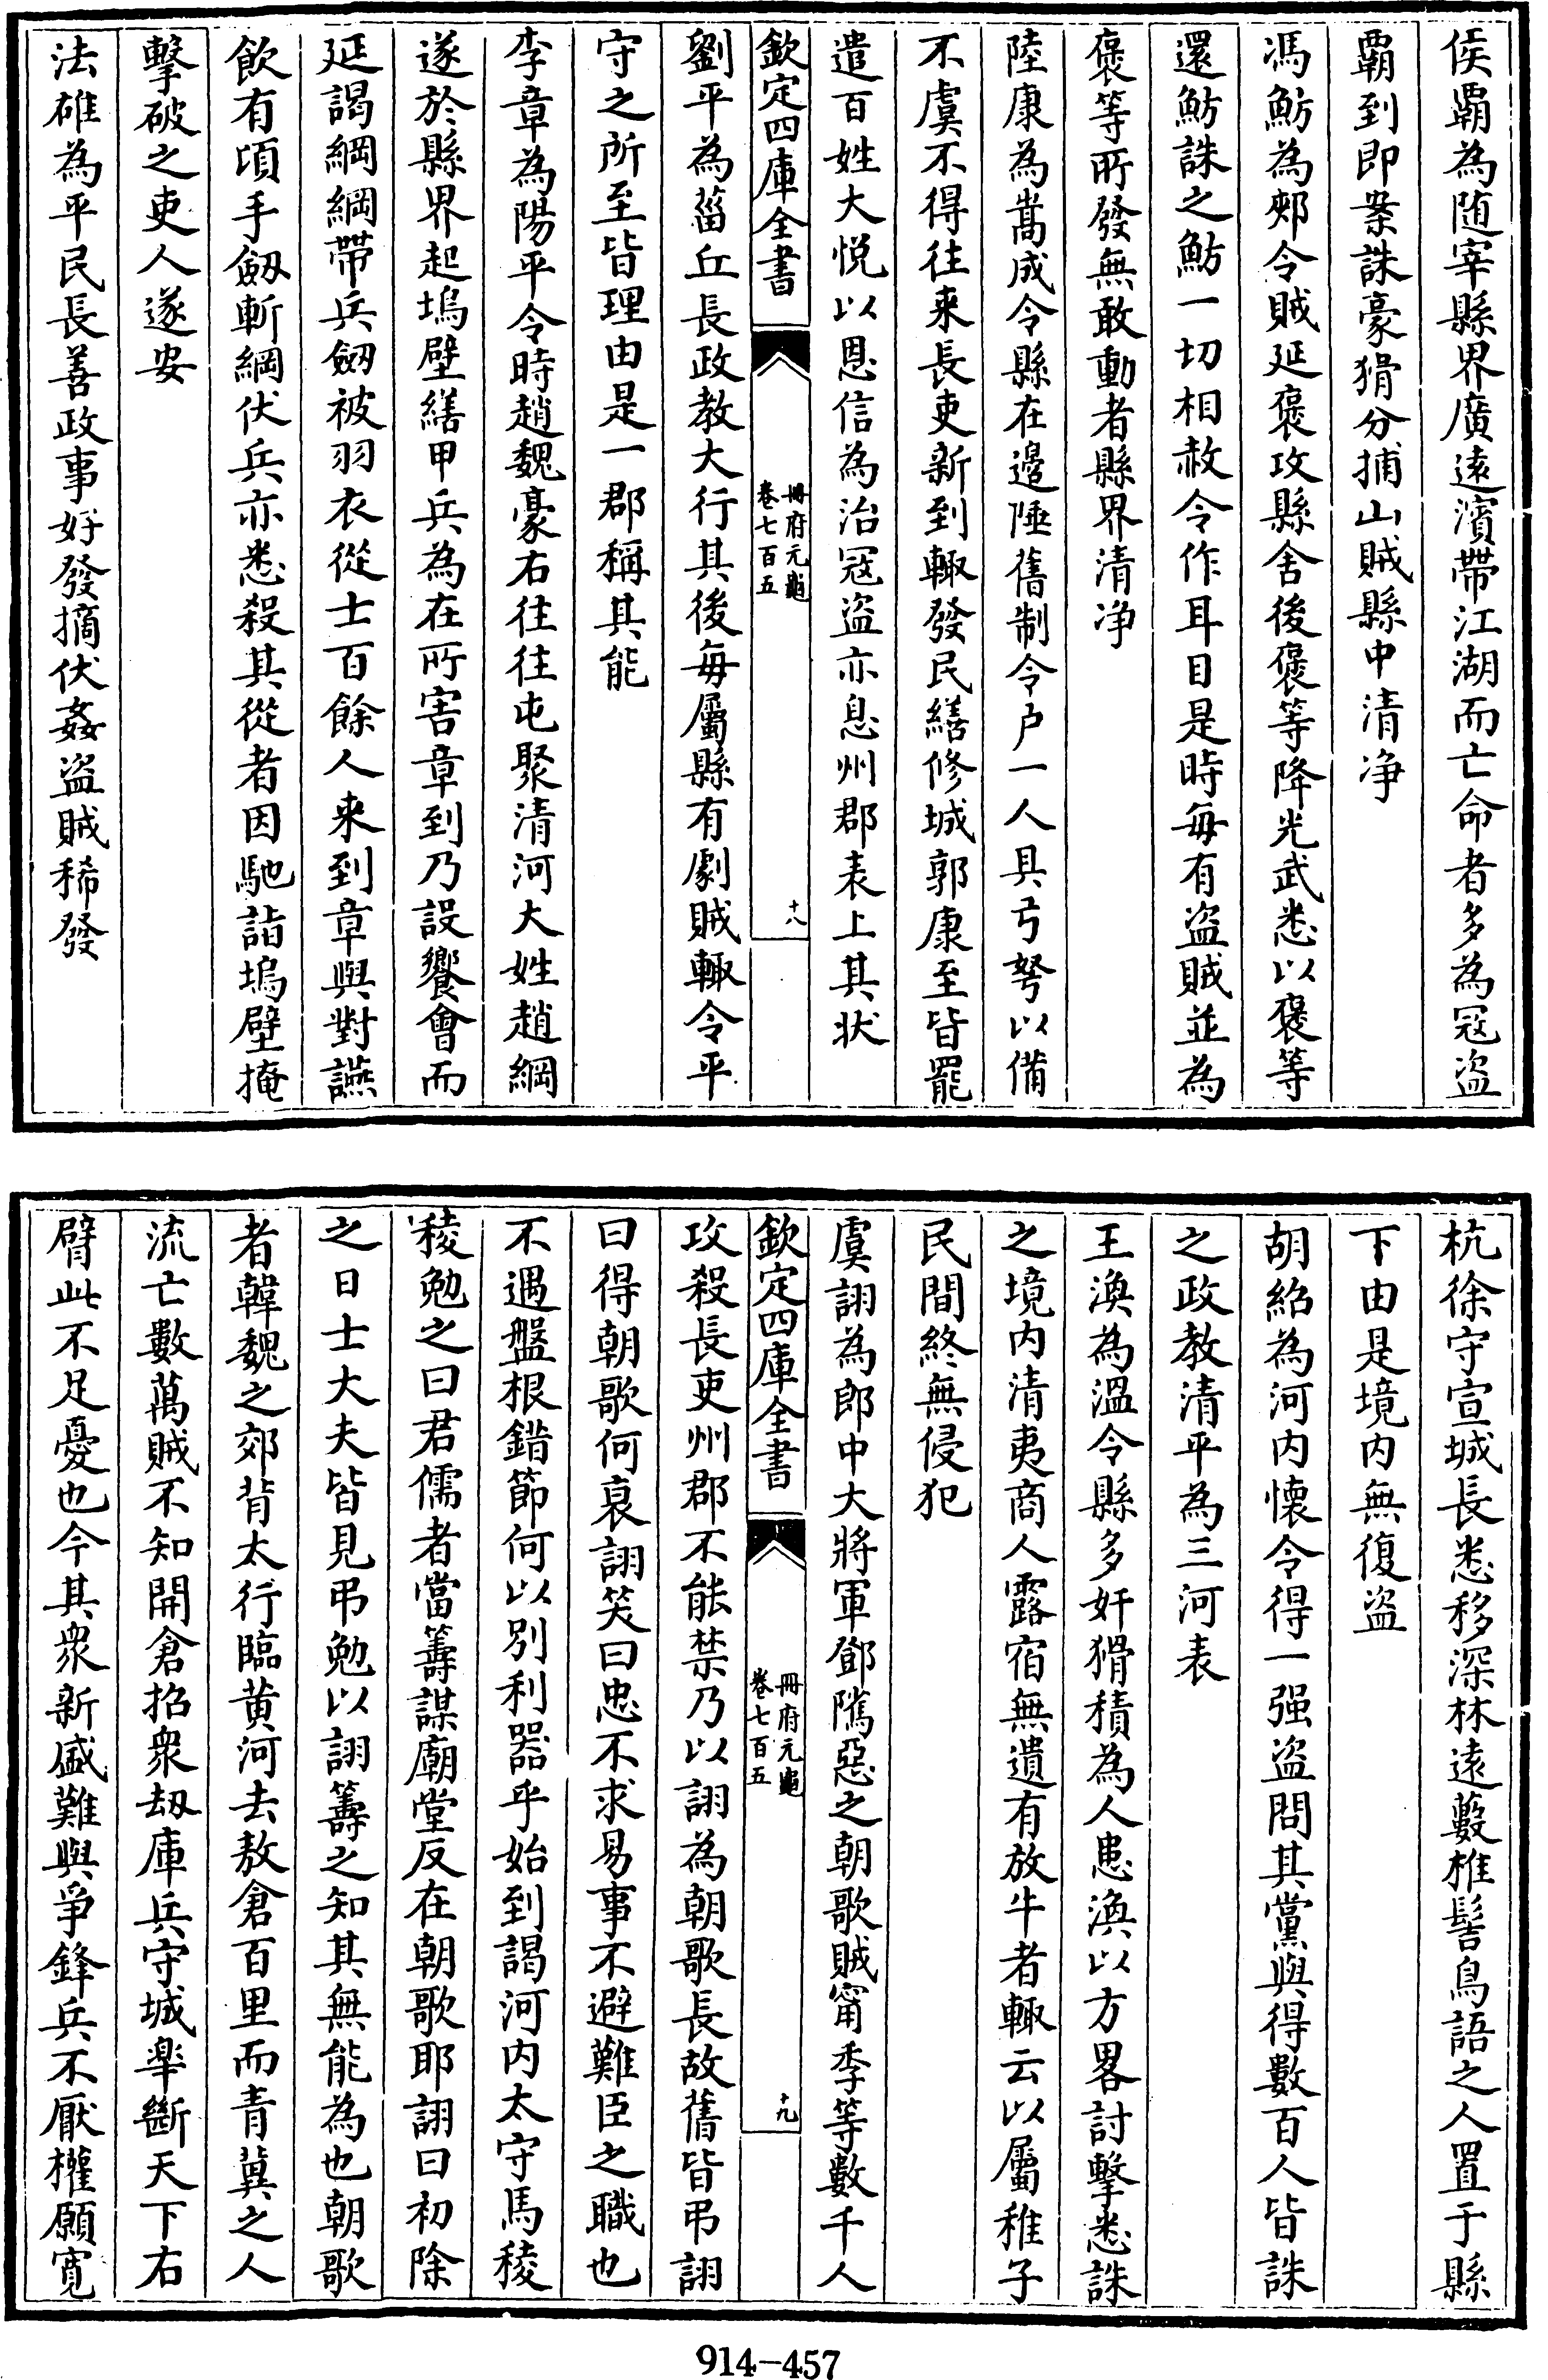 侯霸為随宰縣界廣遠濱帶江湖而亡命者多為冦盗
霸到即案誅豪猾分捕山賊縣中清净
馮魴為郟令賊延褒攻縣舍後褒等降光武悉以褒等
還魴誅之魴一切相赦令作耳目是時毎有盗賊並為
褒等所發無敢動者縣界清净
陸康為髙成令縣在邉陲舊制令户一人具弓弩以備
不虞不得往来長吏新到輙發民繕修城郭康至皆罷
遣百姓大悦以恩信為治冦盗亦息州郡表上其状
欽定四庫全書
冊府元龜
卷七百五
十八
劉平為菑丘長政教大行其後毎屬縣有劇賊輙令平
守之所至皆理由是一郡稱其能
李章為陽平令時趙魏豪右往往屯聚清河大姓趙綱
遂於縣界起塢壁繕甲兵為在所害章到乃設饗會而
延謁綱綱帶兵劒被羽衣從士百餘人来到章與對讌
飲有頃手劒斬綱伏兵亦悉殺其從者因馳詣塢壁掩
擊破之吏人遂安
法雄為平民長善政事好發摘伏姦盗賊稀發
杭徐守宣城長悉移深林遠藪椎髻鳥語之人置于縣
下由是境内無復盗
胡紹為河内懐令得一强盗問其黨與得數百人皆誅
之政教清平為三河表
王渙為溫令縣多奸猾積為人患渙以方畧討擊悉誅
之境内清夷商人露宿無遺有放牛者輙云以屬稚子
民間終無侵犯
虞詡為郎中大將軍鄧隲惡之朝歌賊甯季等數千人
欽定四庫全書
冊府元龜
卷七百五
十九
攻殺長吏州郡不能禁乃以詡為朝歌長故舊皆弔詡
曰得朝歌何哀詡笑曰忠不求易事不避難臣之職也
不遇盤根錯節何以别利器乎始到謁河内太守馬稜
稜勉之曰君儒者當籌謀廟堂反在朝歌耶詡曰初除
之日士大夫皆見弔勉以詡籌之知其無能為也朝歌
者韓魏之郊背太行臨黄河去敖倉百里而青冀之人
流亡數萬賊不知開倉招衆刼庫兵守城臯斷天下右
臂此不足憂也今其衆新盛難與爭鋒兵不厭權願寛
914-457